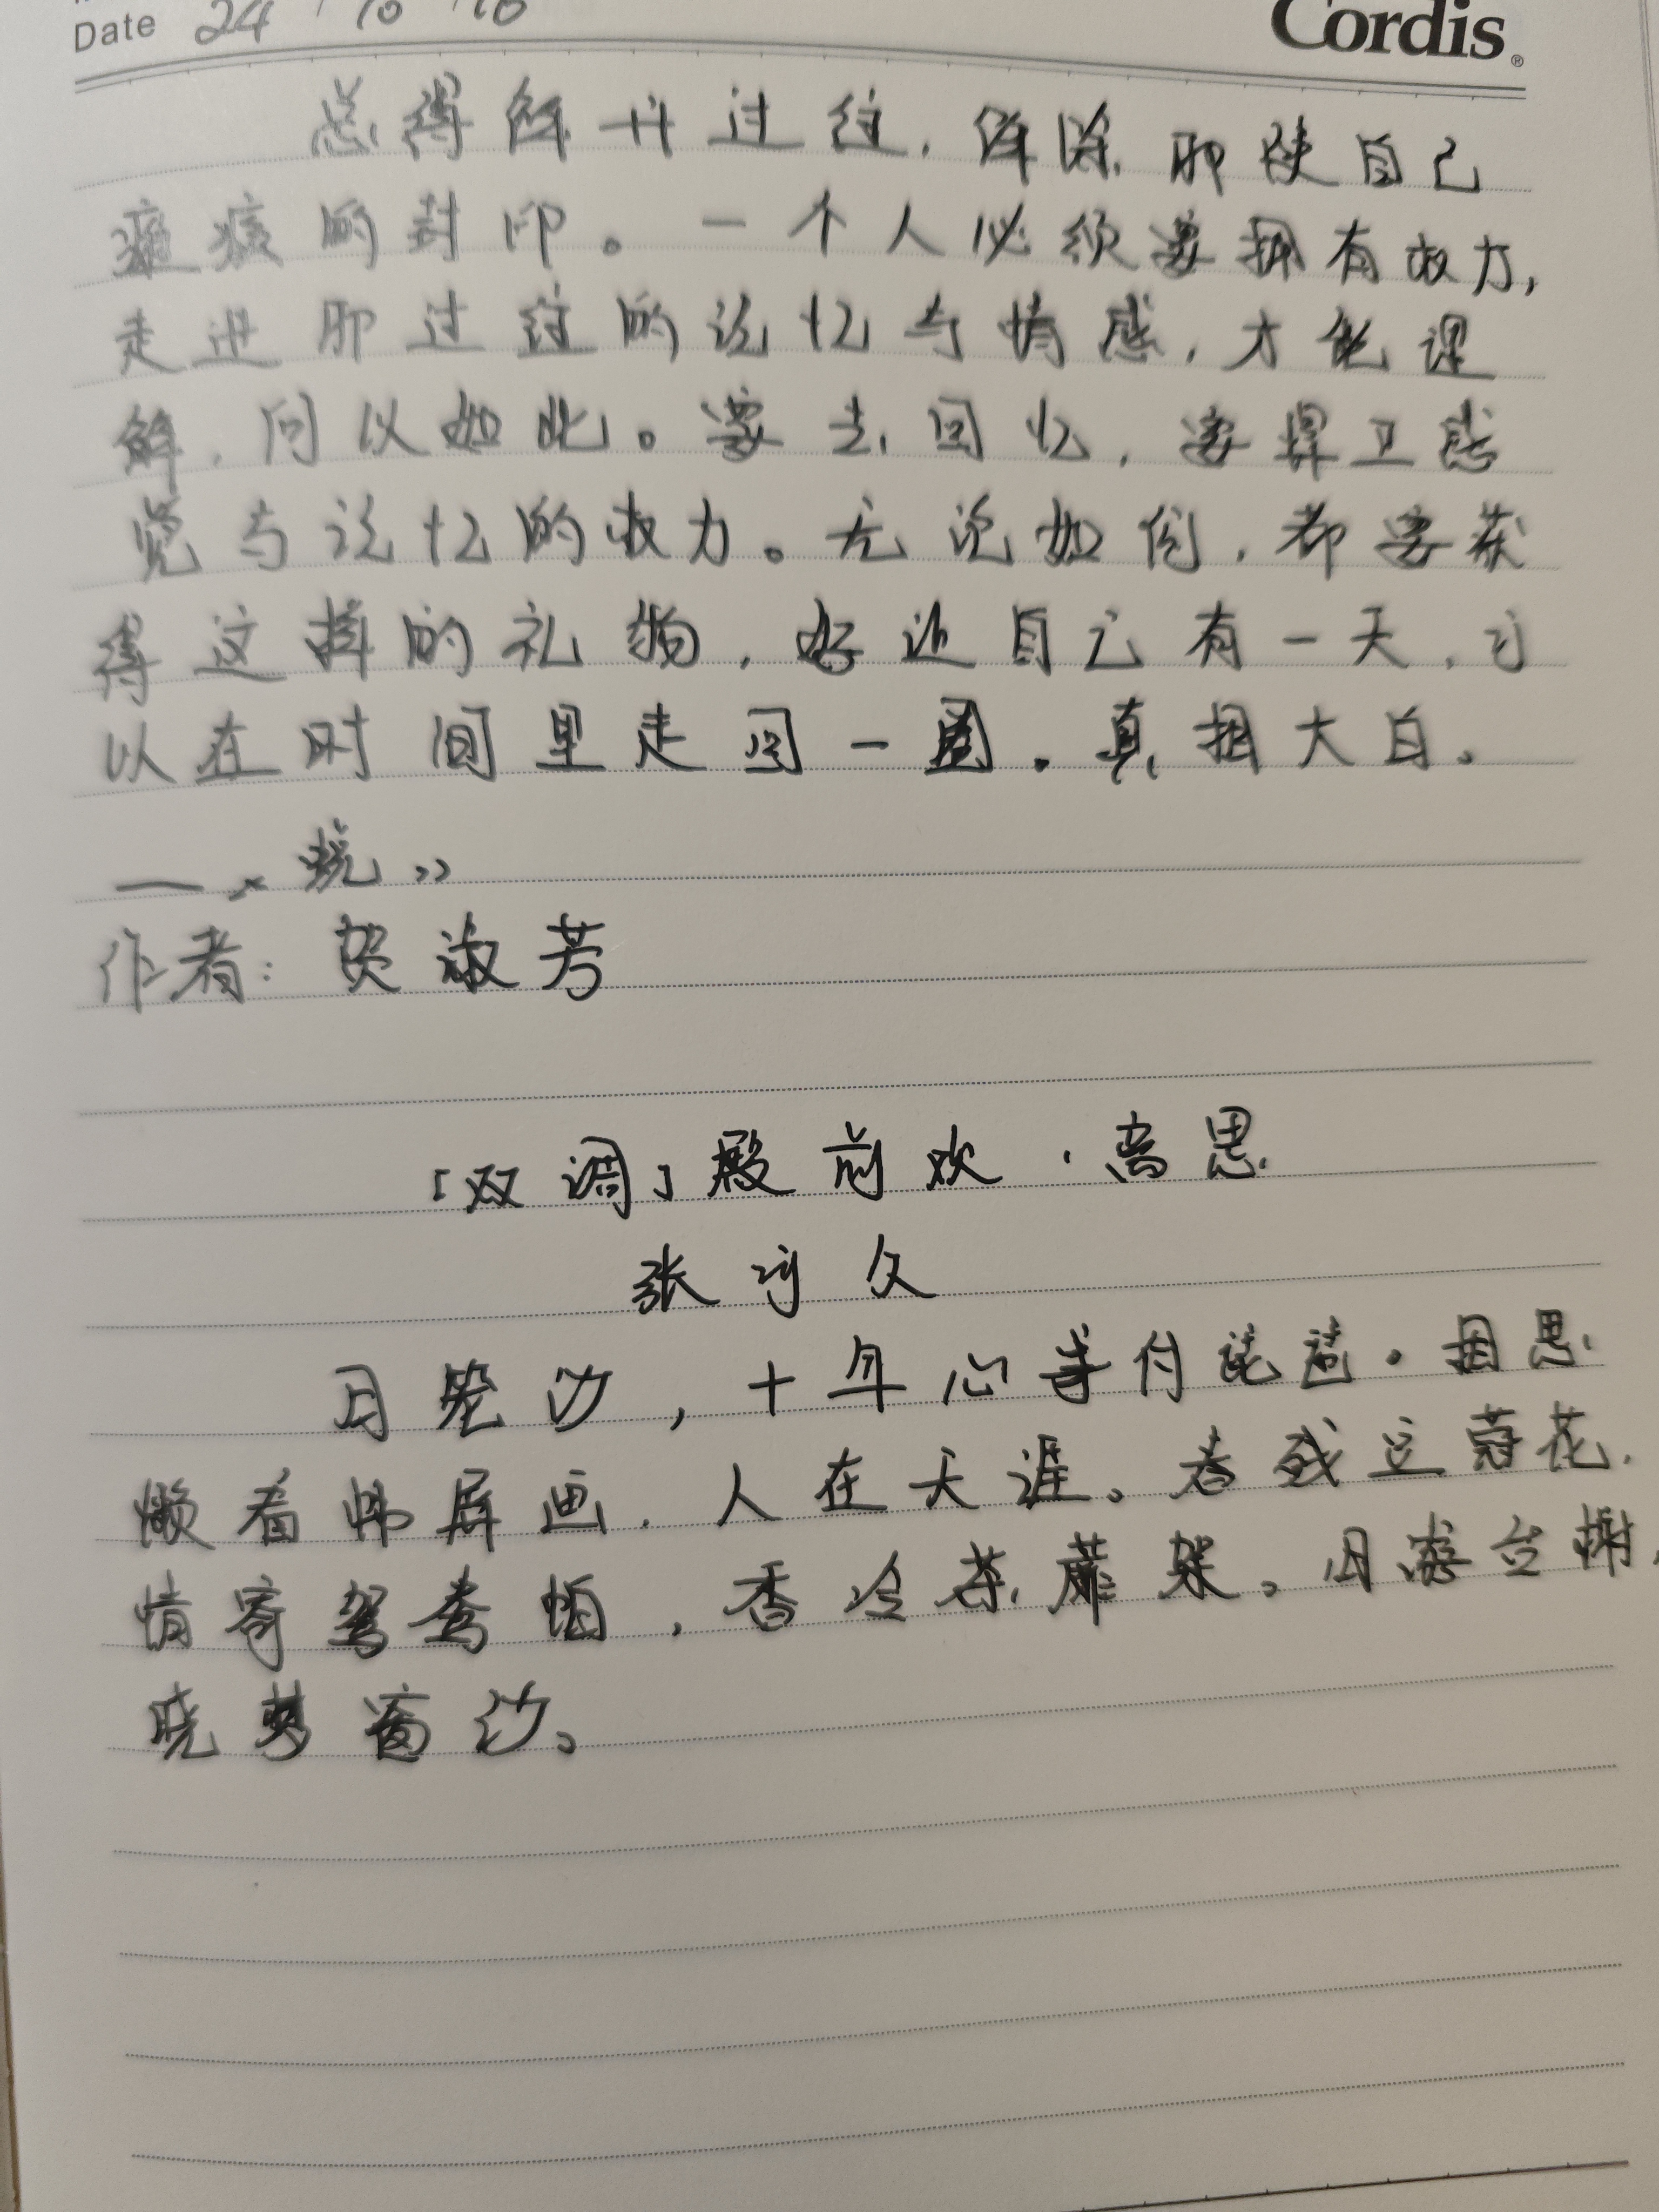 Date 24 / 10 / 10
Cordis®
总得解开过往，解除那使自己
瘫痪的封印。一个人必须要拥有权力，
走进那过往的记忆与情感，才能理
解，何以如此。要去回忆，要捍卫感
觉与记忆的权力。无论如何，都要获
得这样的礼物，好让自己有一天，可
以在时间里走回一圈。真相大白。
—《蜕》
作者：贺淑芳
「双调」殿前欢·离思
张可久
月笼沙，十年心事付琵琶。相思
懒看帏屏画，人在天涯。春残豆蔻花，
情寄鸳鸯帕，香冷荼蘼架。旧游台榭，
晓梦窗沙。